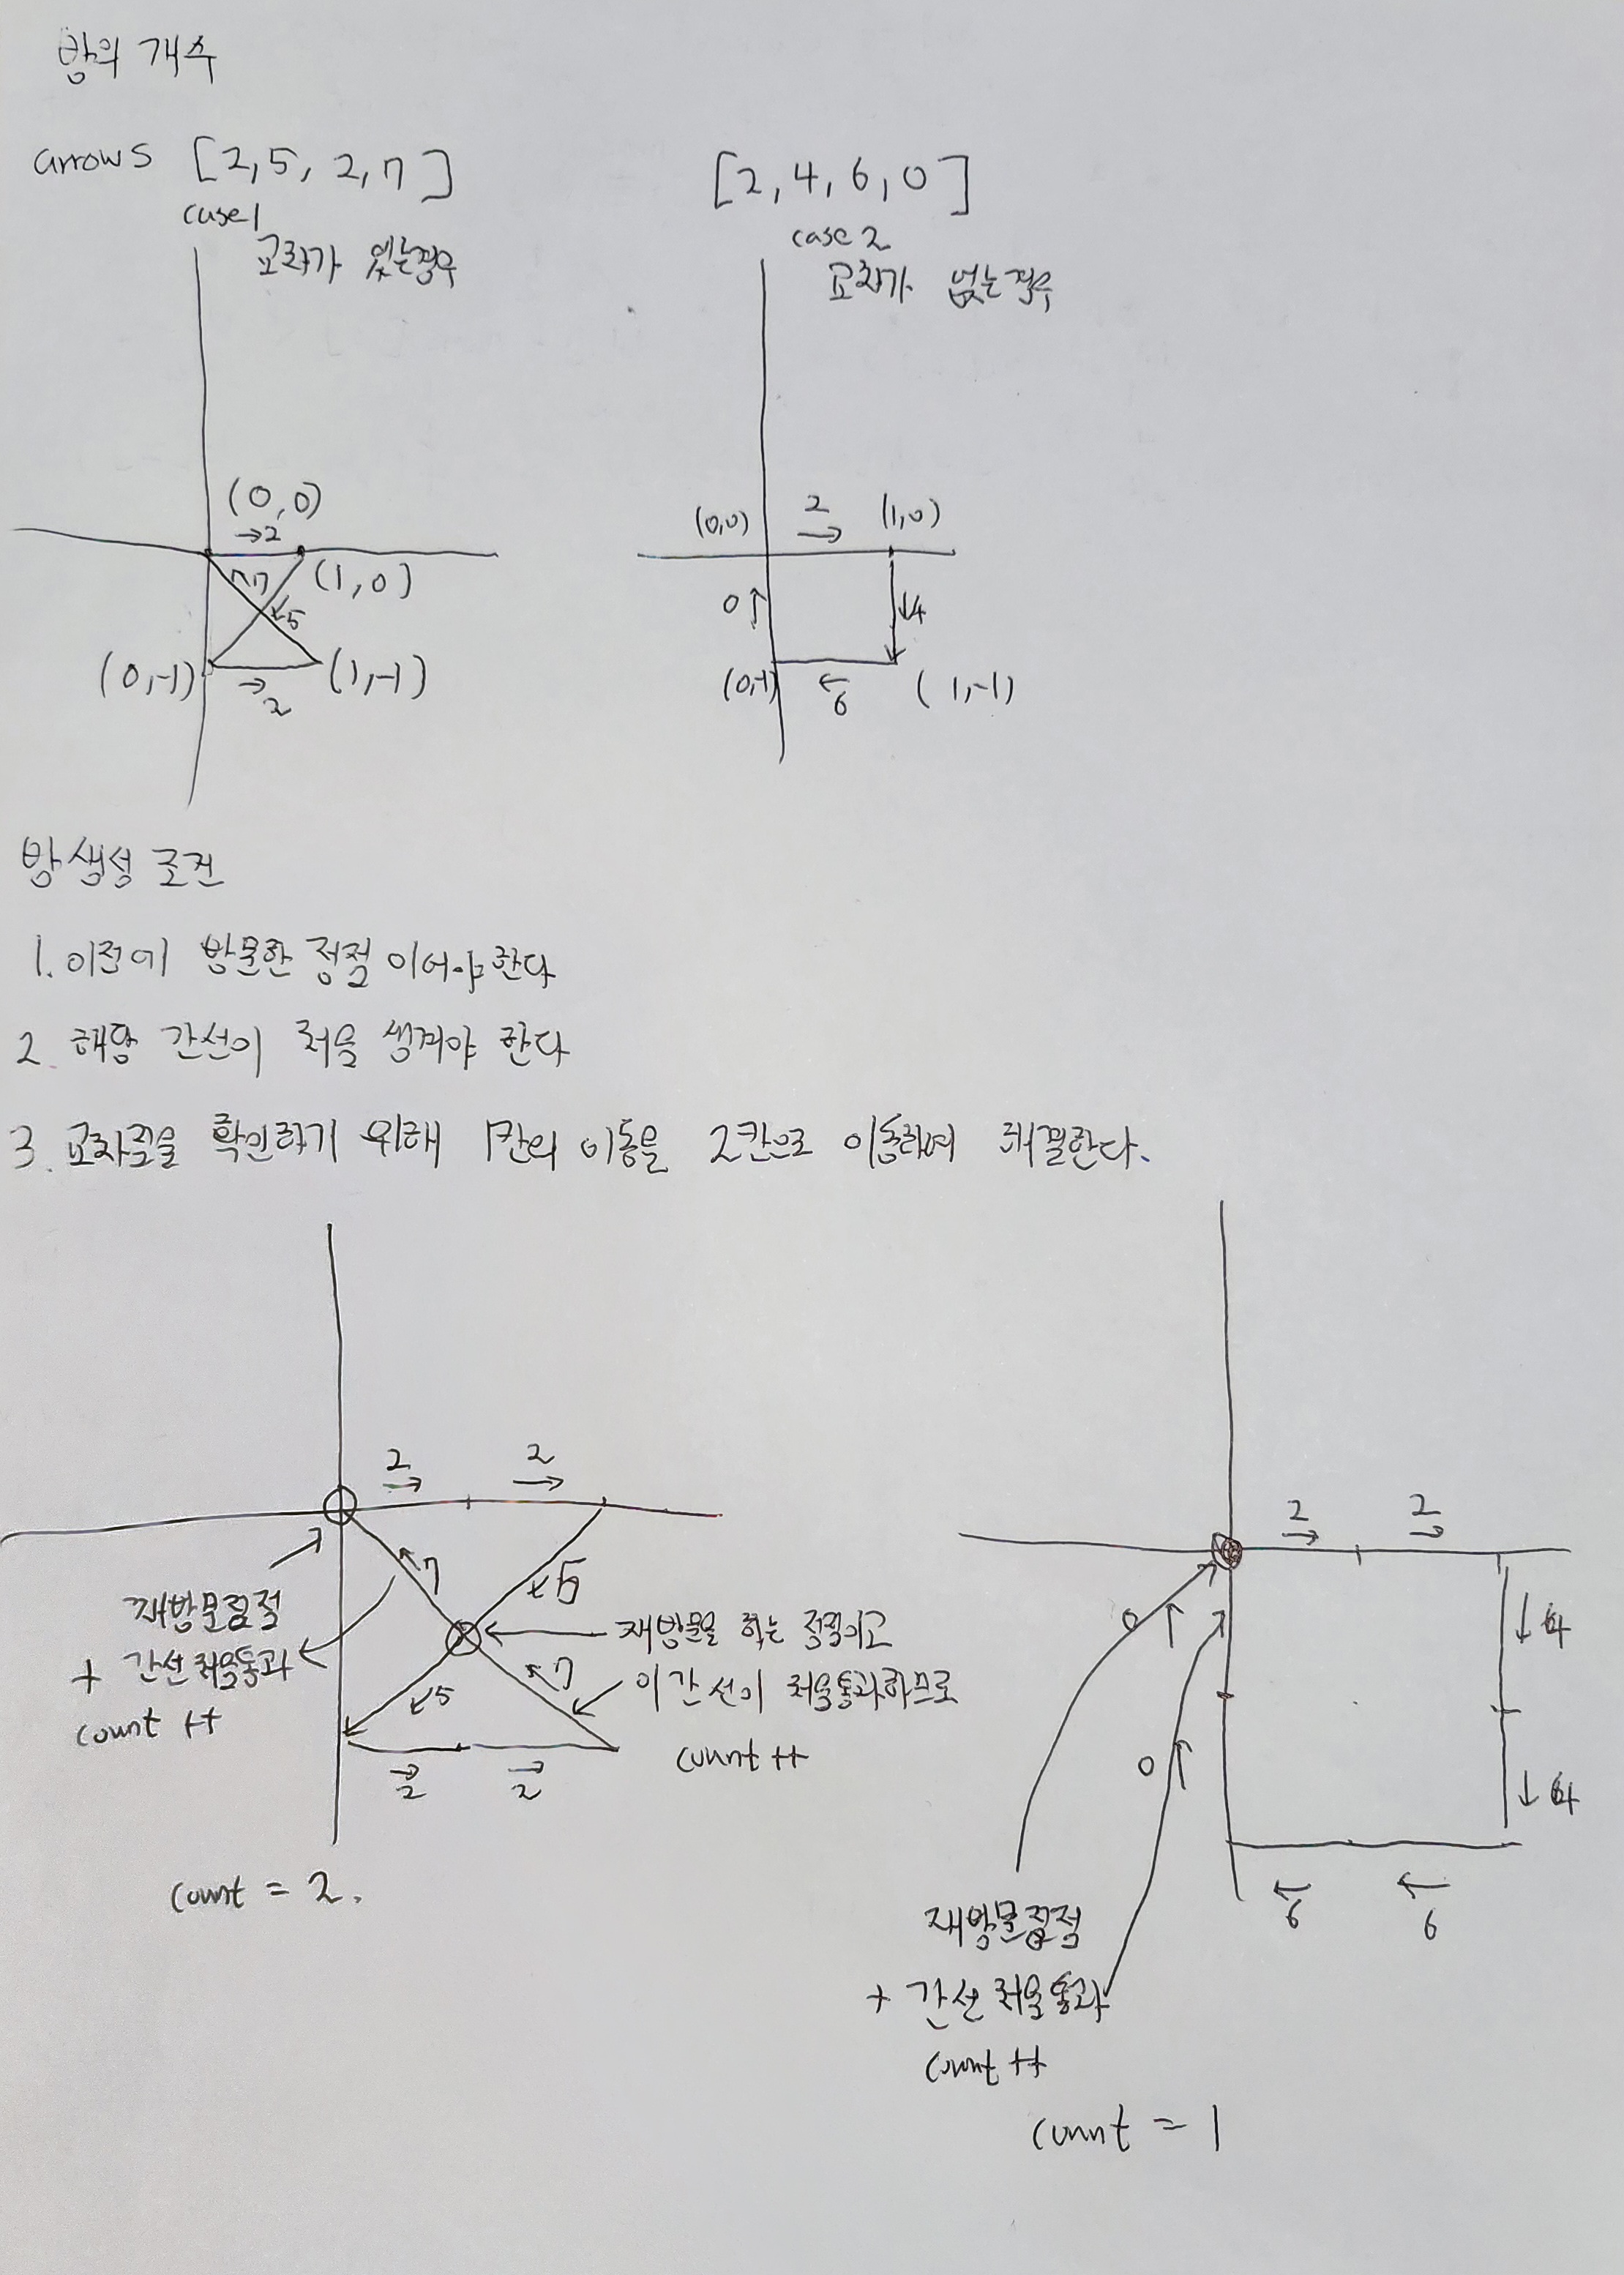 방의 개수
arrows [2,5, 2,7]
case1
교차가 있는경우
(0,0)
→2
(1,0)
↖7
↙5
(0,-1)
(1,-1)
→
2
[2,4,6,0]
case 2
교차가 없는경우
(0,0)
2
→
(1,0)
0↑
↓4
(0,-1)
←
6
(1,-1)
방생성 조건
1. 이전에 방문한 정점 이어야 한다
2. 해당 간선이 처음 생겨야 한다
3. 교차점을 확인하기 위해 1칸의 이동을 2칸으로 이동하며 해결한다.
2
→
2
→
↖7
↙5
재방문정점
+ 간선 처음통과
count ++
재방문을 하는 정점이고
이 간선이 처음통과하므로
count ++
↖7
↙5
→
2
→
2
count = 2.
2
→
2
→
0↑
↓4
0↑
↓4
←
6
←
6
재방문정점
+ 간선 처음통과
count ++
count = 1